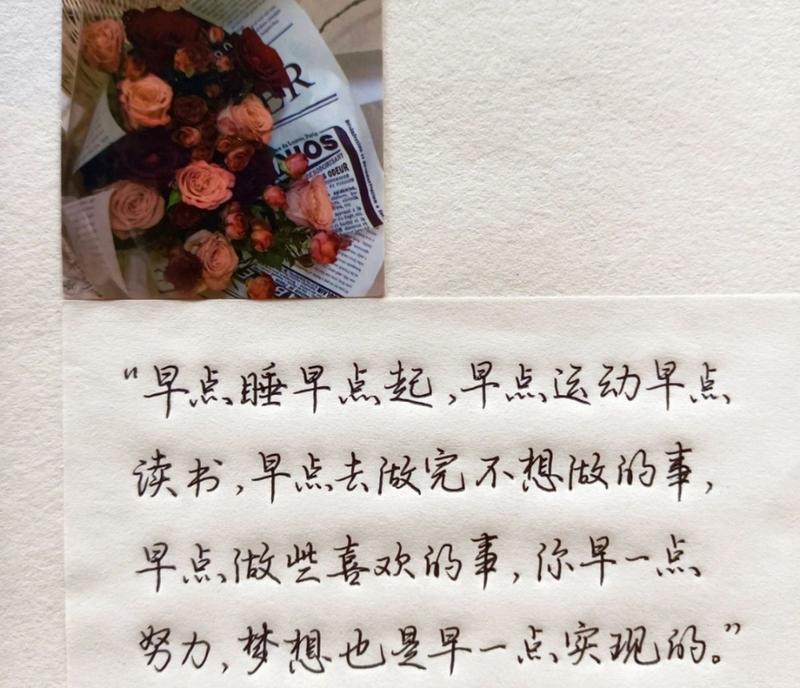 ER
NOS
ODEUR
“早点睡早点起,早点运动早点
读书,早点去做完不想做的事,
早点做些喜欢的事,你早一点
努力,梦想也是早一点实现的。”